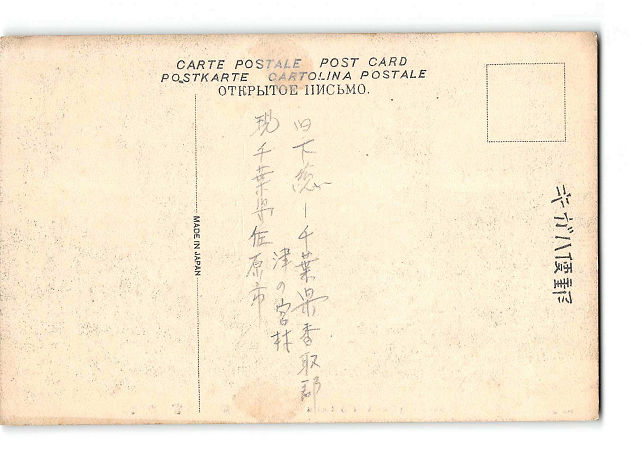 CARTE POSTALE POST CARD
POSTKARTE CARTOLINA POSTALE
ОТКРЫТОЕ ПИСЬМО.
郵便ハガキ
旧下総ー千葉県香取郡
津の宮村
現千葉県佐原市
MADE IN JAPAN